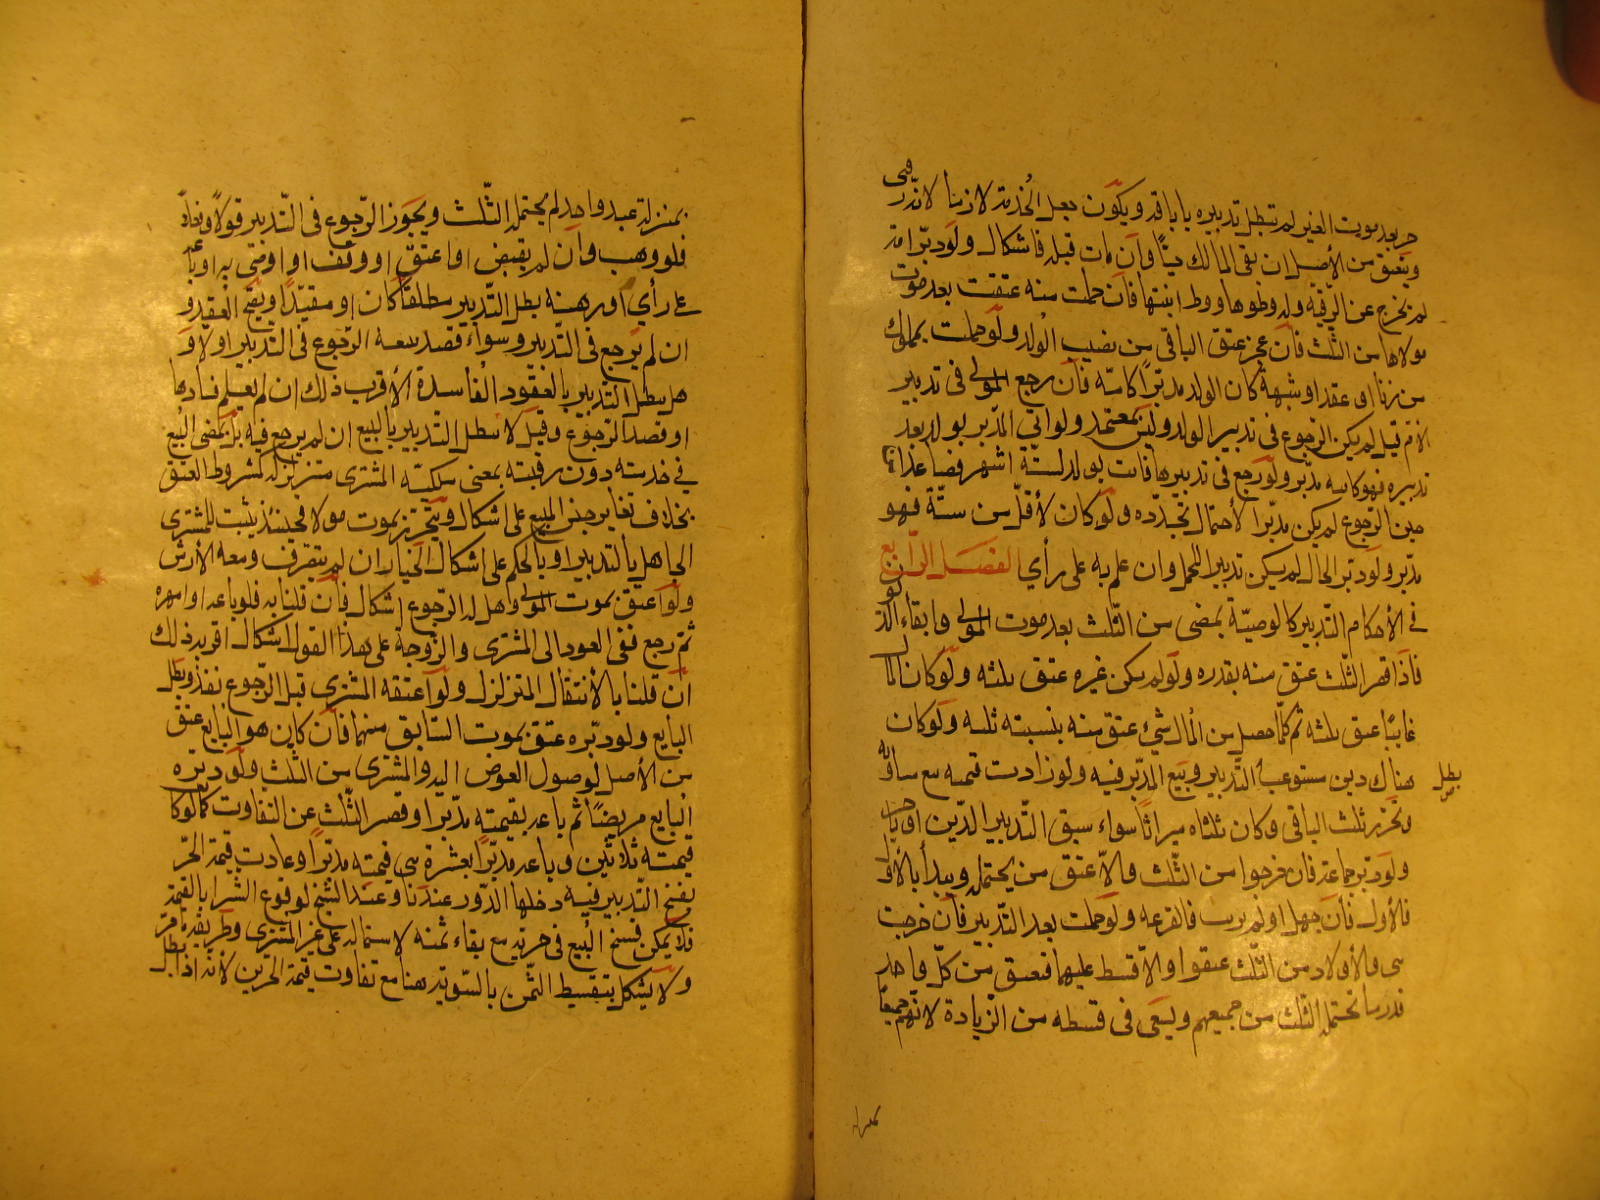 حر بعد موت الغير لم تبطل تدبيره باباقه ويكون جعل الخدمة لازما لا تدبر فى
ويعتق من الأصل ان بقى المالك حيّا وان مات قبله فاشكال ولو دبّر امة
لم يخرج عن الرقيّة وله وطوها ووطا ابنتها فان حملت منه عتقت بعد موت
مولاها من الثلث فان عجز عتق الباقى من نصيب الولد ولو حملت بمملوك
من زنا او عقد او شبهة كان الولد مدبّرا كامّه فان رجع المولى فى تدبير
الام قيل لم يكن الرجوع فى تدبير الولد وليس بمعتمد ولو اتى المدّبر بولد بعد
تدبيره فهو كابيه مدبّر ولو رجع فى تدبيرها فاتت بولد لستّة اشهر فصاعدا من
حين الرّجوع لم يكن مدبّرا لأحتمال تجدّده ولو كان لأقلّ من ستّة فهو
مدبّر ولو دبّر الحامل لم يكن تدبير للحمل وان علم به على رأي الفصل الرّابع
فى الأحكام التّدبير كالوصيّة بمضى من الثّلث بعد موت المولى وايفاء الدّ
فاذا قصر الثّلث عتق منه بقدره ولو لم يكن غيره عتق ثلثه ولو كان الما
غائبا عتق ثلثه ثم كلّما حصل من المال شيئ عتق منه بنسبته ثلثه ولو كان
هناك دين مستوعب التّدبير وبيع المدّبر فيه ولو زادت قيمته بيع مساويه
بطل ص
وتحرّر ثلث الباقى وكان ثلثاه ميراثا سواء سبق التّدبير الدّين او تأخر
ولو دبّر جماعة فان خرجوا من الثّلث والاّ عتق من يحتمله ويبدأ بالأوّل
فالأول فان جهل او لم يرتب فالقرعه ولو حملت بعد التّدبير فان خرجت
هى والأولاد من الثّلث عتقوا والاّ قسط عليهما فيعتق من كلّ واحد
قدر ما تحتمله الثلث من جميعهم ويسعى فى قسطه من الزّيادة لانّهم جميعا
بمنزلة
بمنزلة عبد واحد لم يحتمله الثّلث ويجوز الرّجوع فى التّدبير قولا وفعلا
فلو وهب وان لم يقبض او اعتق او وقف او اوصى به او باع
على رأي او رهنه بطل التّدبير مطلقا كان او مقيّدا ويصح العقد و
ان لم يرجع فى التّدبير وسواء قصد ببيعه الرّجوع فى التّدبير اولا و
هل يبطل التدبير بالعقود الفاسدة الأقرب ذلك ان لم يعلم فسادها
او قصد الرّجوع وقيل لا يبطل التدبير بالبيع ان لم يرجع فيه بل يمضى البيع
فى خدمته دون رقبته بمعنى ملكيّه المشترى متزلزله كمشروط العتق
بخلاف تغاير جنس المبيع على اشكال ويتحرّر بموت مولاه فحينئذ يثبت للمشترى
الجاهل بالتدبير او بالحكم على اشكال الخيار ان لم يتصرف ومعه الأرش
ولو اعتق بموت المولى وهل له الرّجوع اشكال فان قلنا به فلو باعه او امهره
ثم رجع ففى العود الى المشترى والزّوجة على هذا القول اشكال اقربه ذلك
ان قلنا بالأنتقال المتزلزل ولو اعتقه المشترى قبل الرّجوع نفذ وبطل
البايع ولو دبّره عتق بموت السّابق منهما فان كان هو البايع عتق
من الأصل لوصول العوض اليه والمشترى من الثلث ولو دبّره
البايع مريضا ثم باعه بقيمته مدّبرا وقصر الثّلث عن التفاوت كما لو كا
قيمته ثلاثين وباعه مدبّرا بعشرة هى قيمته مدبّرا وعادت قيمة الحرّ
بفسخ التّدبير فيه دخلها الدّور عندنا وعند الشيخ لوقوع الشرا بالقيمة
فلا يمكن فسخ البيع فى حريته مع بقاء ثمنه لاستماله على غير المشترى وطريقه ما مرّ
ولا يشكل بتقسيط الثّمن بالسّوية هنا مع تفاوت قيمة الحرّين لانه اذا بطل